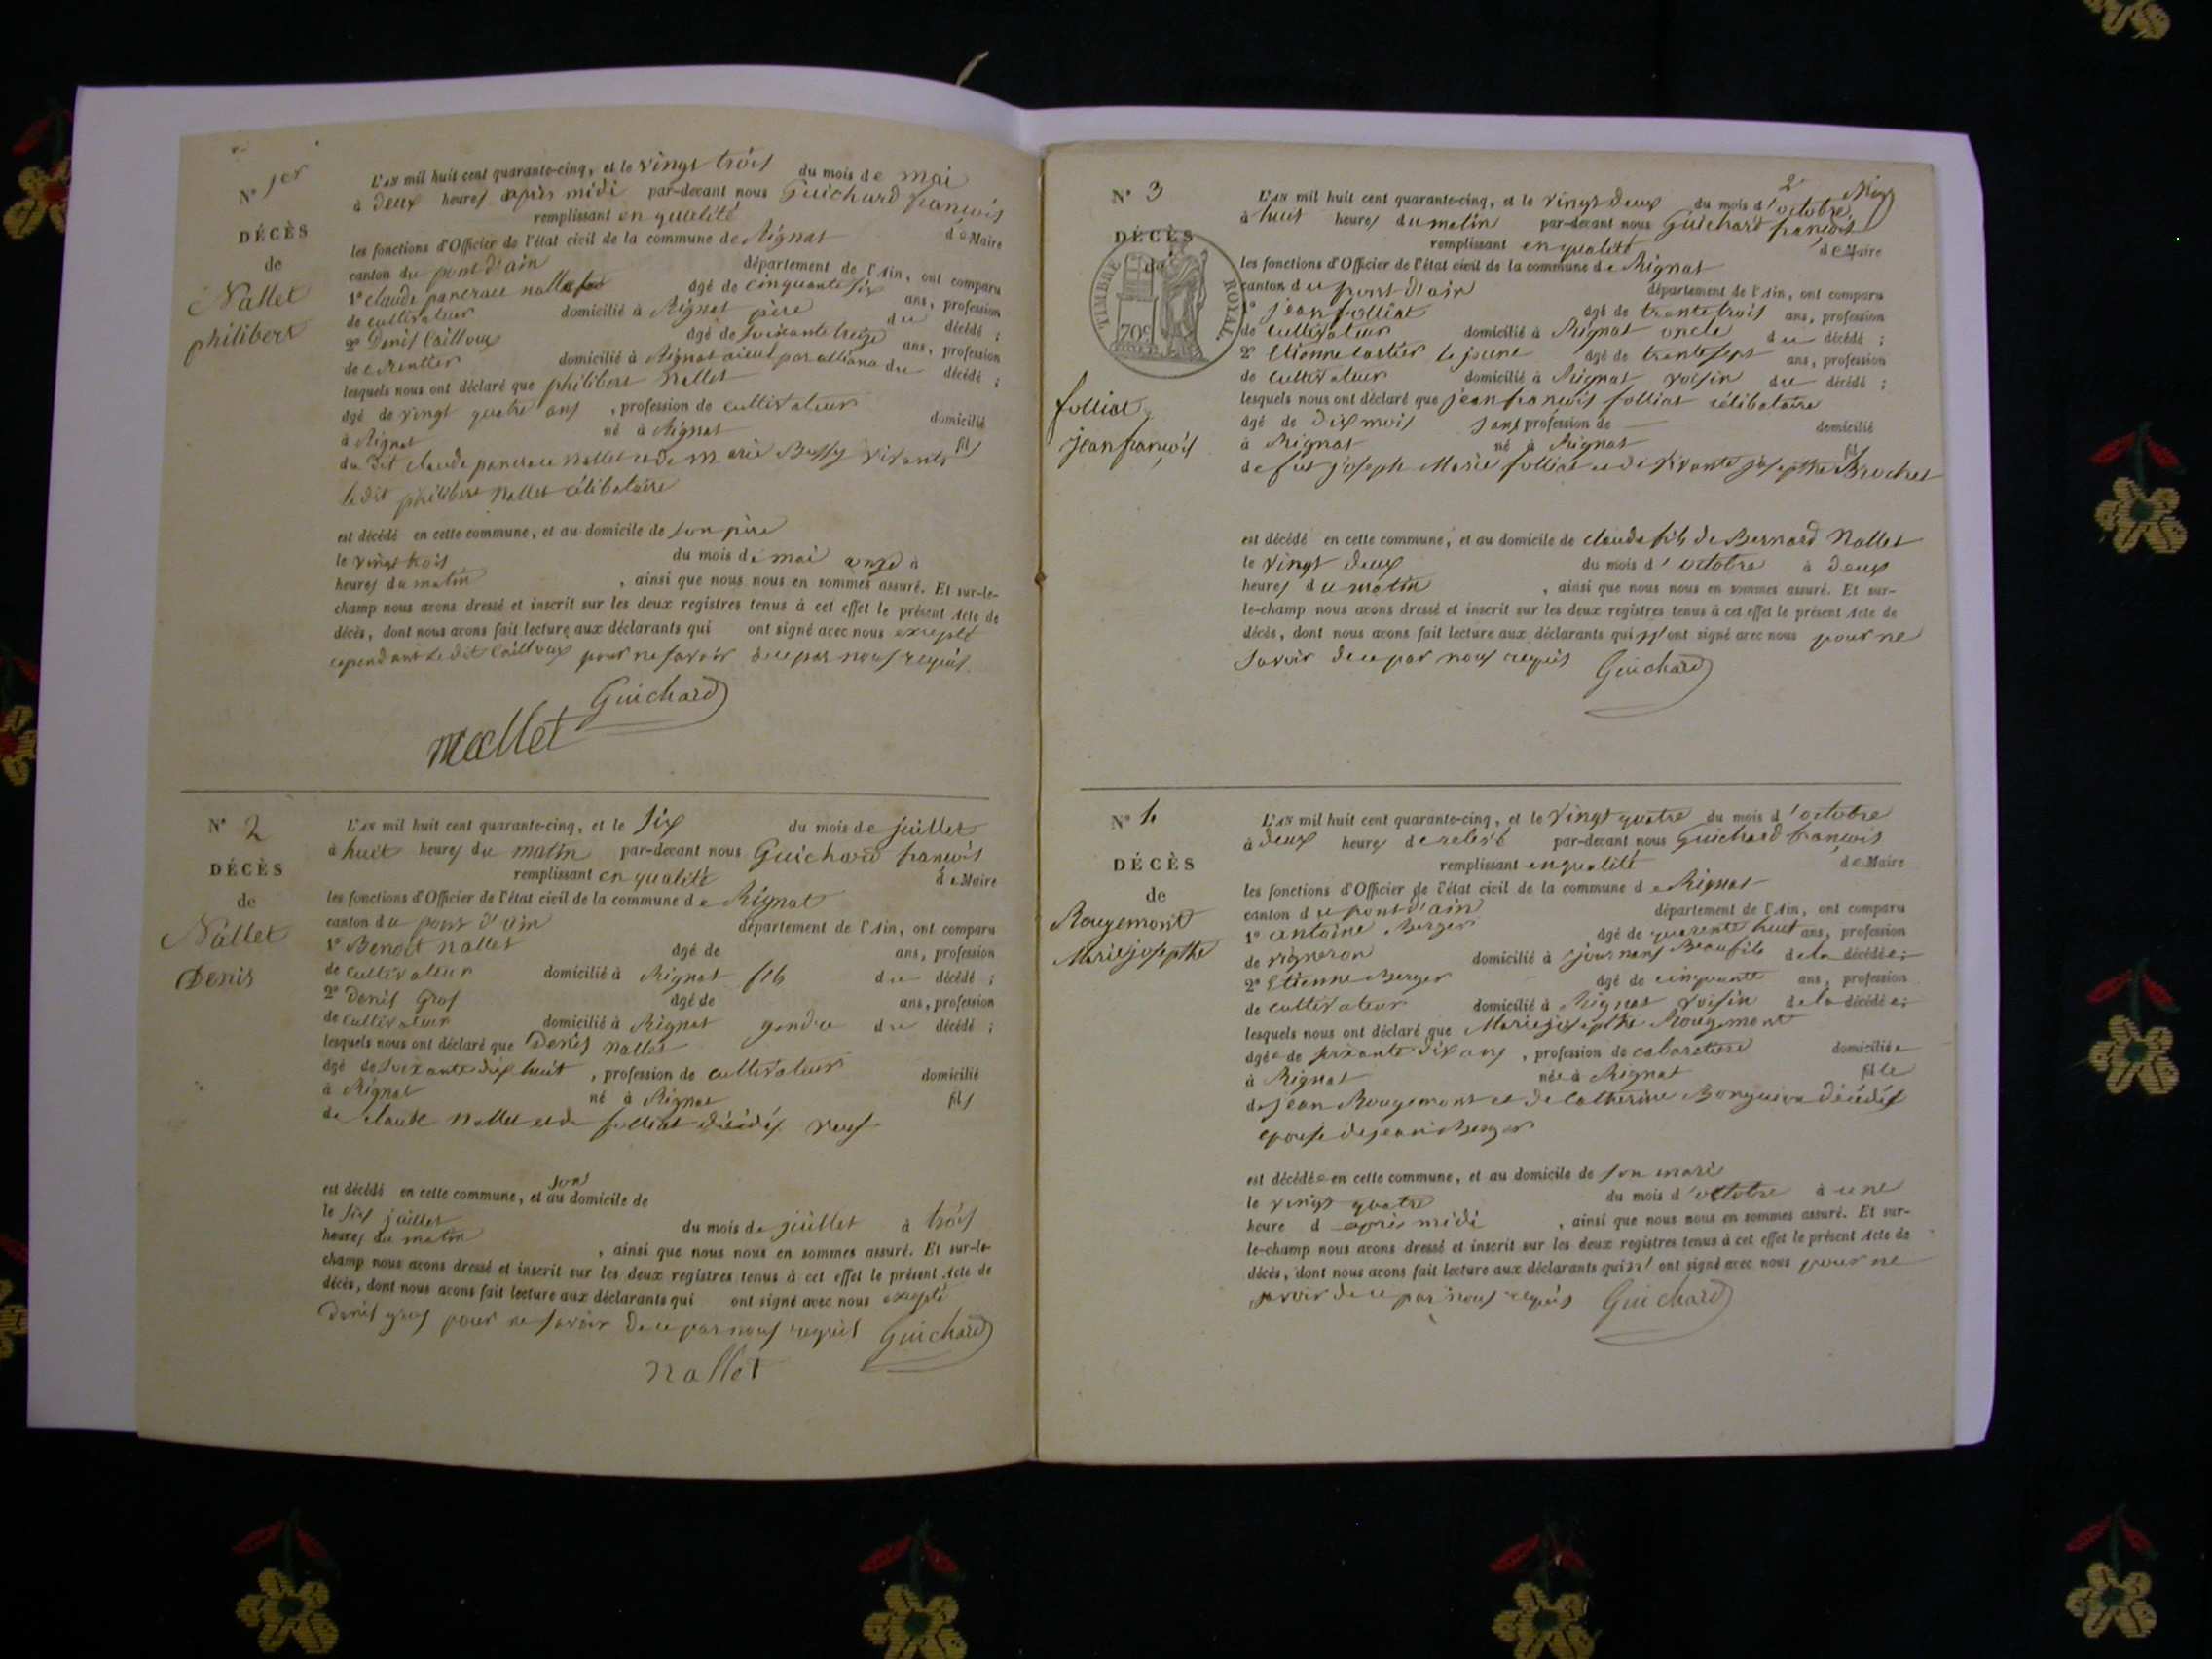 N° 1er
DÉCÈS
de
Nallet
philibert
L'an mil huit cent quarante-cinq, et le vingt trois du mois de mai
à deux heures après midi par-devant nous Guichard françois
remplissant en qualité de Maire
les fonctions d'Officier de l'état civil de la commune de Rignat
canton du pont d'ain département de l'Ain, ont comparu
1° claude pancrace nallet âgé de cinquante six ans, profession
de cultivateur domicilié à Rignat père du décédé ;
2° Denis Cailloux âgé de soixante treize ans, profession
de rentier domicilié à Rignat aieul par alliance du décédé ;
lesquels nous ont déclaré que philibert Nallet
âgé de vingt quatre ans , profession de cultivateur domicilié
à Rignat né à Rignat fils
du dit claude pancrace nallet et de marie Bussy vivants
le dit philibert Nallet célibataire
est décédé en cette commune, et au domicile de son père
le vingt trois du mois de mai onze à
heures du matin , ainsi que nous nous en sommes assuré. Et sur-le-
champ nous avons dressé et inscrit sur les deux registres tenus à cet effet le présent Acte de
décès, dont nous avons fait lecture aux déclarants qui ont signé avec nous excepté
cependant le dit Cailloux pour ne savoir de ce par nous requis.
Guichard
nallet
N° 2
DÉCÈS
de
Nallet
Denis
L'an mil huit cent quarante-cinq, et le six du mois de juillet
à huit heures du matin par-devant nous Guichard françois
remplissant en qualité de Maire
les fonctions d'Officier de l'état civil de la commune de Rignat
canton du pont d'ain département de l'Ain, ont comparu
1° Benoit nallet âgé de ans, profession
de cultivateur domicilié à Rignat fils du décédé ;
2° Denis Gros âgé de ans, profession
de cultivateur domicilié à Rignat gendre du décédé ;
lesquels nous ont déclaré que Denis nallet
âgé de soixante dix huit , profession de cultivateur domicilié
à Rignat né à Rignat fils
de claude Nallet et de folliat décédés veuf
est décédé en cette commune, et au son domicile de
le six juillet du mois de juillet à trois
heures du matin , ainsi que nous nous en sommes assuré. Et sur-le-
champ nous avons dressé et inscrit sur les deux registres tenus à cet effet le présent Acte de
décès, dont nous avons fait lecture aux déclarants qui ont signé avec nous excepté
Denis gros pour ne savoir de ce par nous requis Guichard
nallet
2
N° 3
DÉCÈS
de
TIMBRE ROYAL
70c
folliat
jean françois
L'an mil huit cent quarante-cinq, et le vingt deux du mois d'octobre
à huit heures du matin par-devant nous Guichard françois
remplissant en qualité de Maire
les fonctions d'Officier de l'état civil de la commune de Rignat
canton du pont d'ain département de l'Ain, ont comparu
1° jean folliat âgé de trente trois ans, profession
de cultivateur domicilié à Rignat oncle du décédé ;
2° Etienne cartier le jeune âgé de trente sept ans, profession
de cultivateur domicilié à Rignat voisin du décédé ;
lesquels nous ont déclaré que jean françois folliat célibataire
âgé de dix mois sans profession de domicilié
à Rignat né à Rignat fils
de feu joseph Marie folliat et de vivante josepthe Brochet
est décédé en cette commune, et au domicile de claude fils de Bernard Nallet
le vingt deux du mois d'octobre à deux
heures du matin , ainsi que nous nous en sommes assuré. Et sur-
le-champ nous avons dressé et inscrit sur les deux registres tenus à cet effet le présent Acte de
décès, dont nous avons fait lecture aux déclarants qui n'ont signé avec nous pour ne
savoir de ce par nous requis Guichard
N° 4
DÉCÈS
de
Rougemont
Marie josepthe
L'an mil huit cent quarante-cinq, et le vingt quatre du mois d'octobre
à deux heures de relevé par-devant nous Guichard françois
remplissant en qualité de Maire
les fonctions d'Officier de l'état civil de la commune de Rignat
canton du pont d'ain département de l'Ain, ont comparu
1° antoine Berger âgé de quarante huit ans, profession
de vigneron domicilié à journans Beaufils de la décédée ;
2° Etienne Berger âgé de cinquante ans, profession
de cultivateur domicilié à Rignat voisin de la décédée ;
lesquels nous ont déclaré que Marie josepthe Rougemont
âgée de soixante dix ans , profession de cabaretière domiciliée
à Rignat née à Rignat fille
de jean Rougemont et de Catherine décédés
epouse de jean Berger
est décédée en cette commune, et au domicile de son mari
le vingt quatre du mois d'octobre à une
heure d'après midi , ainsi que nous nous en sommes assuré. Et sur-
le-champ nous avons dressé et inscrit sur les deux registres tenus à cet effet le présent Acte de
décès, dont nous avons fait lecture aux déclarants qui n'ont signé avec nous pour ne
savoir de ce par nous requis Guichard